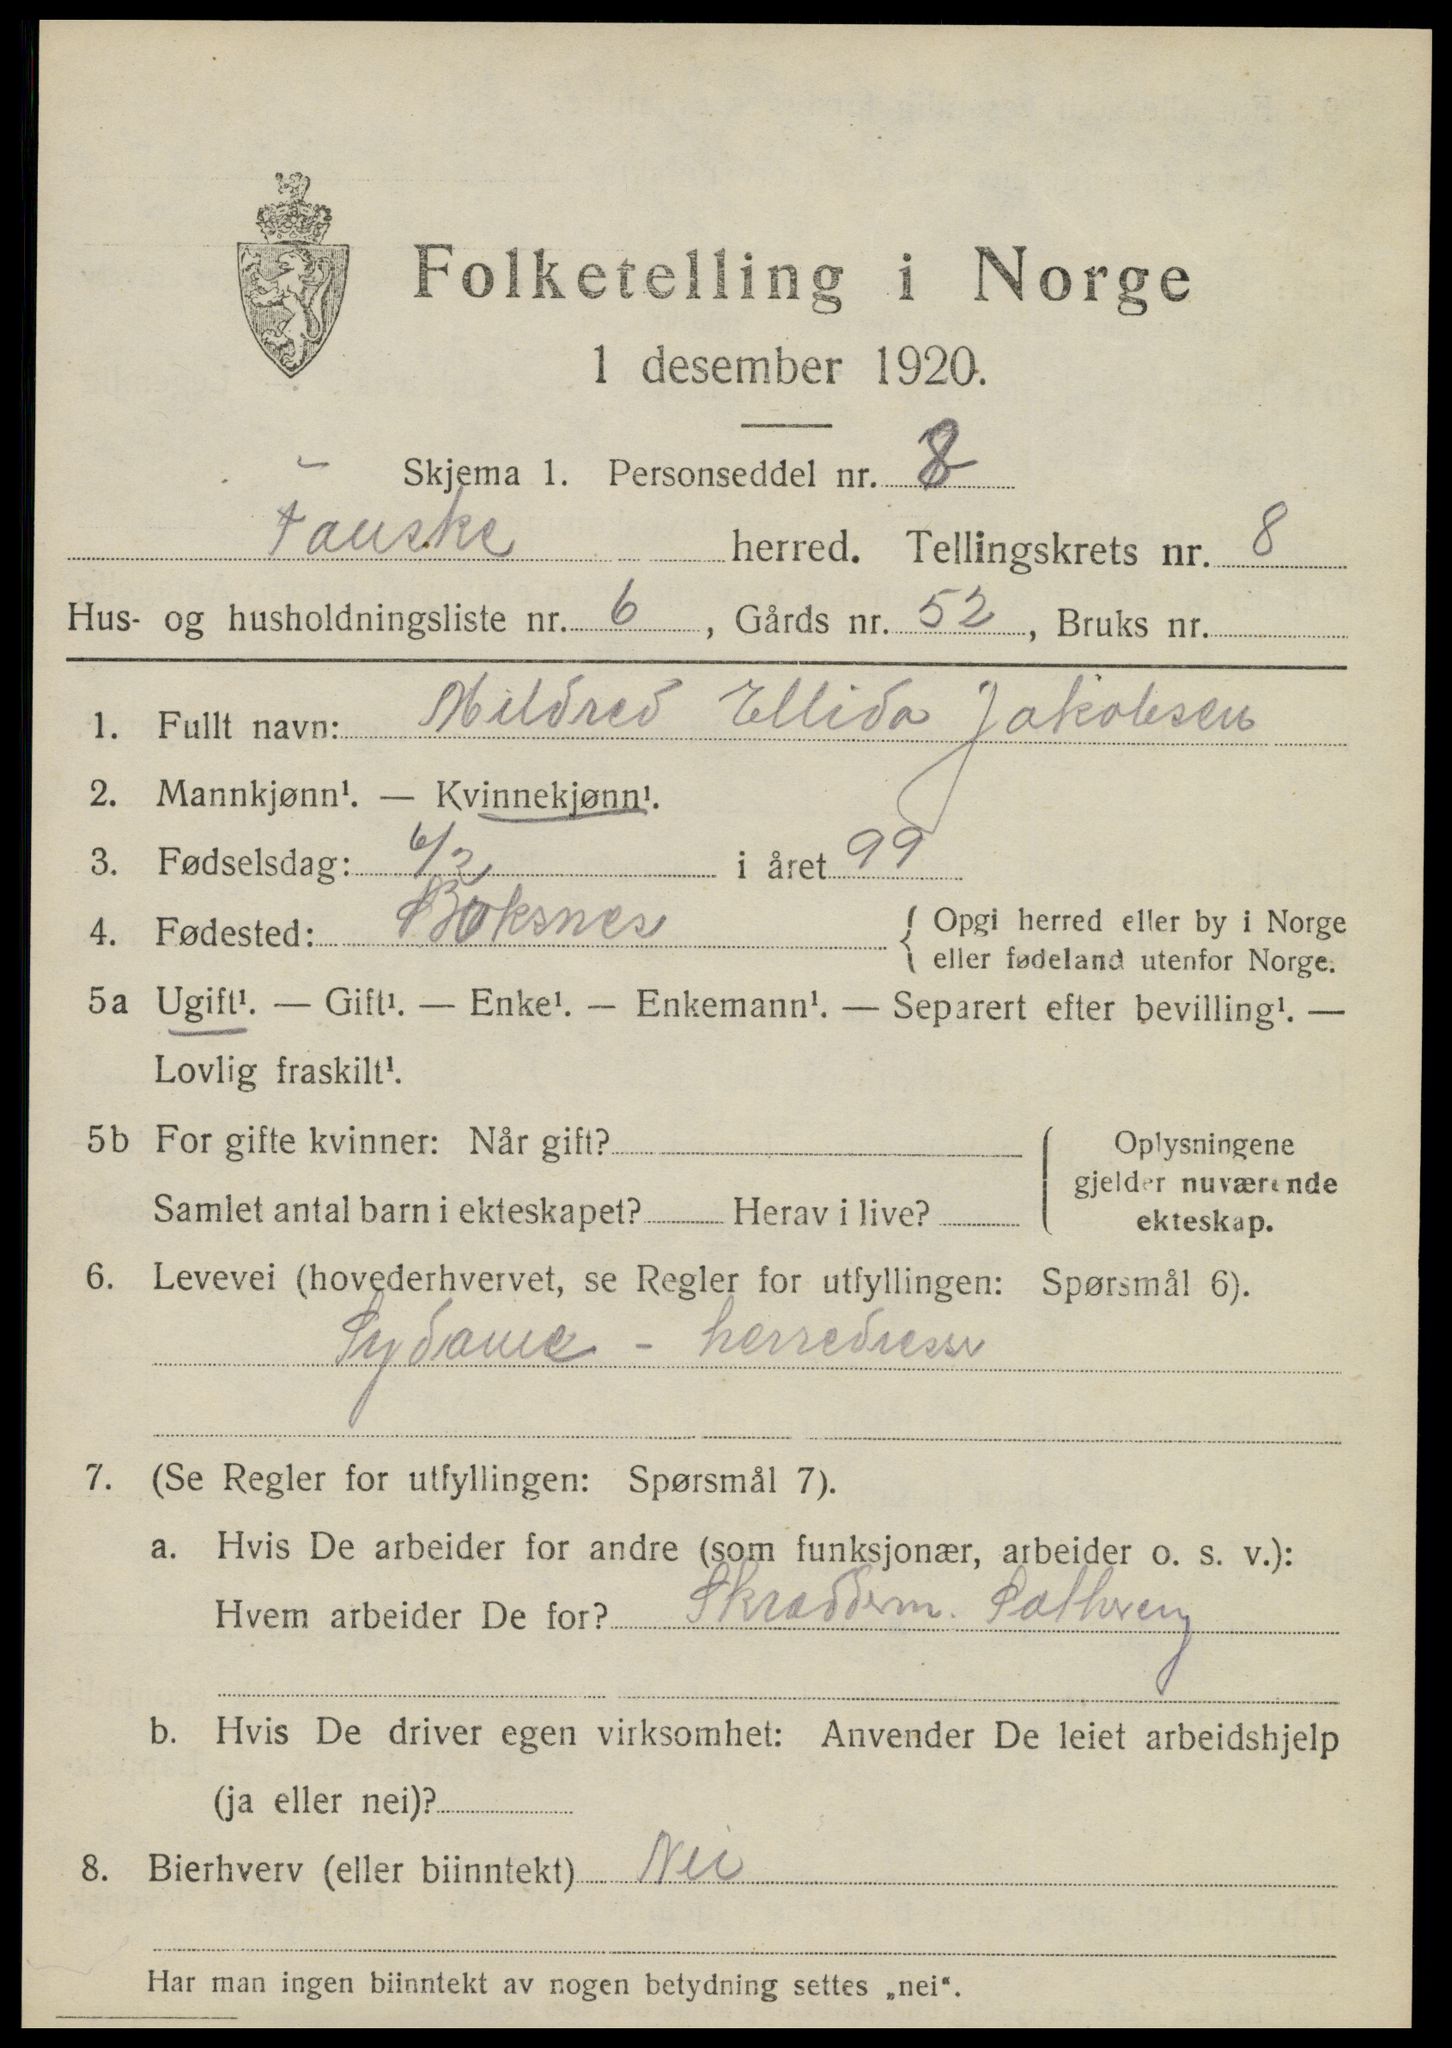 Folketelling i Norge
1 desember 1920.
Skjema 1. Personseddel nr. 8
Fauske herred. Tellingskrets nr. 8
Hus- og husholdningsliste nr. 6, Gårds nr. 52, Bruks nr.
1. Fullt navn: Mildred Ellida Jakobsen
2. Mannkjønn¹. — Kvinnekjønn¹.
3. Fødselsdag: 6/2 i året 99
4. Fødested: Buksnes { Opgi herred eller by i Norge
eller fødeland utenfor Norge.
5a Ugift¹. — Gift¹. — Enke¹. — Enkemann¹. — Separert efter bevilling¹. —
Lovlig fraskilt¹.
5b For gifte kvinner: Når gift?
Samlet antal barn i ekteskapet? Herav i live?
Oplysningene
gjelder nuværende
ekteskap.
6. Levevei (hovederhvervet, se Regler for utfyllingen: Spørsmål 6).
Sydame - herredresser
7. (Se Regler for utfyllingen: Spørsmål 7).
a. Hvis De arbeider for andre (som funksjonær, arbeider o. s. v.):
Hvem arbeider De for? Skrædderm.
b. Hvis De driver egen virksomhet: Anvender De leiet arbeidshjelp
(ja eller nei)?
8. Bierhverv (eller biinntekt) Nei
Har man ingen biinntekt av nogen betydning settes „nei“.